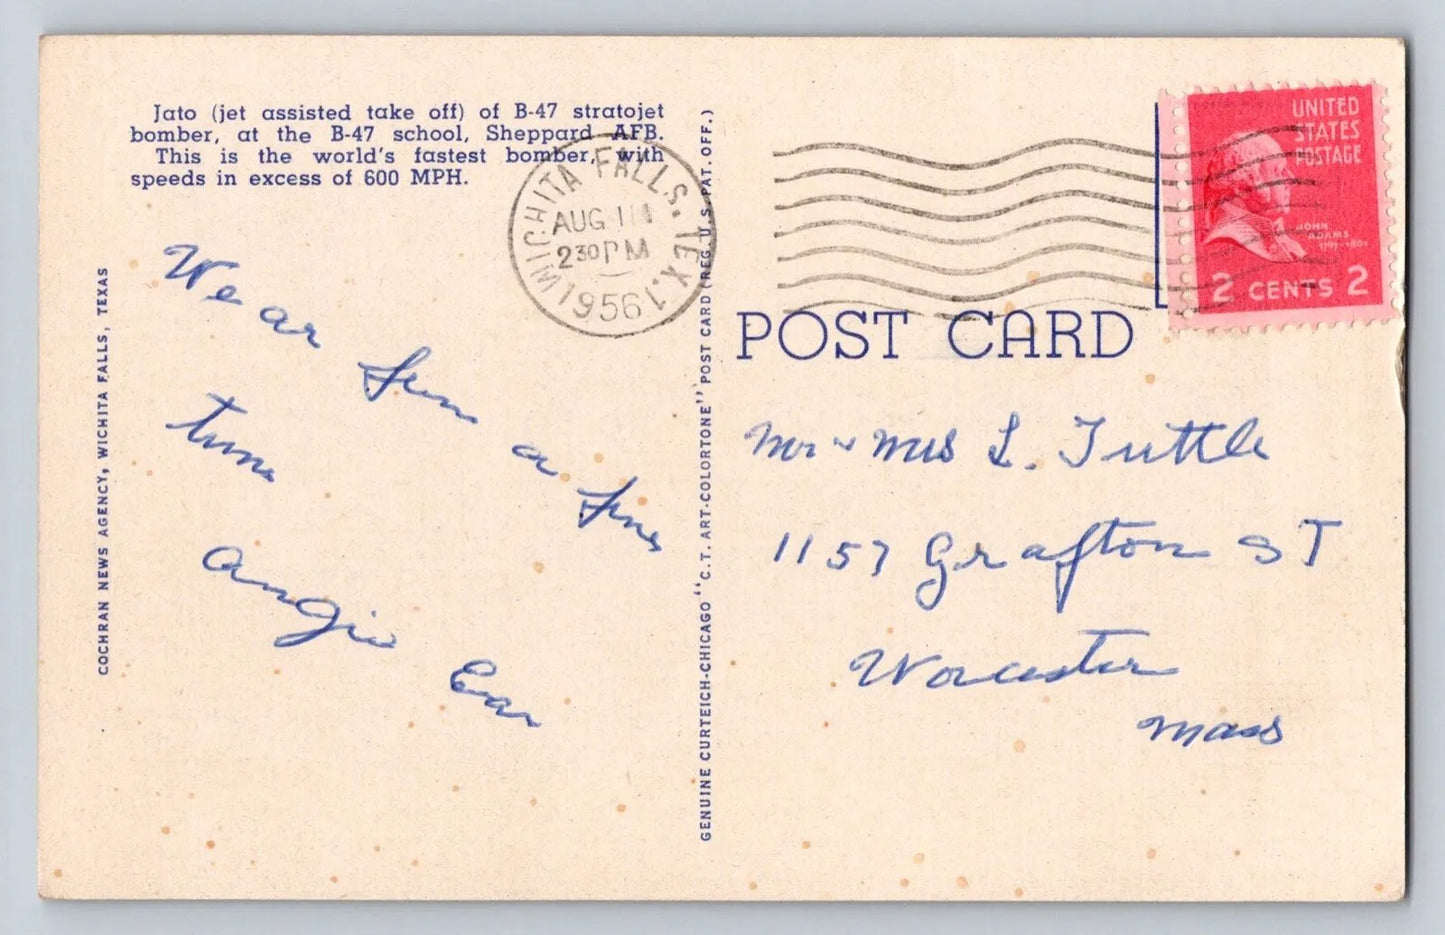 Jato (jet assisted take off) of B-47 stratojet
bomber, at the B-47 school, Sheppard AFB.
This is the world's fastest bomber, with
speeds in excess of 600 MPH.
COCHRAN NEWS AGENCY, WICHITA FALLS, TEXAS
We ar
a
time
Angie
GENUINE CURTEICH-CHICAGO "C.T. ART-COLORTONE" POST CARD (REG. U.S. PAT. OFF.)
WICHITA FALLS. TEX. 1
AUG 11
2 30 PM
1956
UNITED
STATES
POSTAGE
JOHN
ADAMS
2 CENTS 2
POST CARD
Mr & Mrs L. Tuttle
1157 Grafton ST
Worcester
Mass